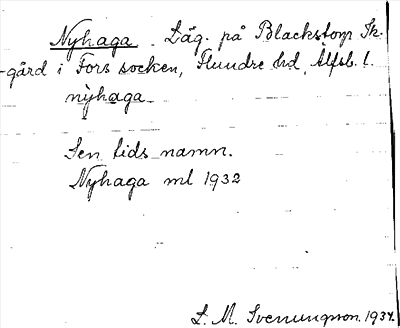 Nyhaga. Läg. på Blackstorp Sk.
-gård i Fors socken, Flundre hd, Älfsb. l.
nỳhaga
Sen tids namn.
Nyhaga ml 1932
L. M. Svenungsson. 1934.